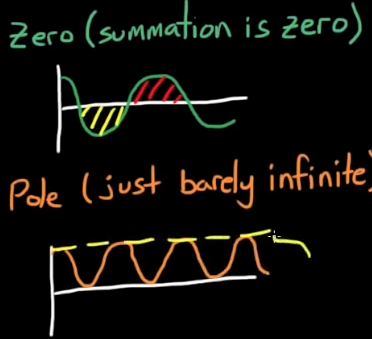 Zero (summation is zero)
Pole (just barely infinite)